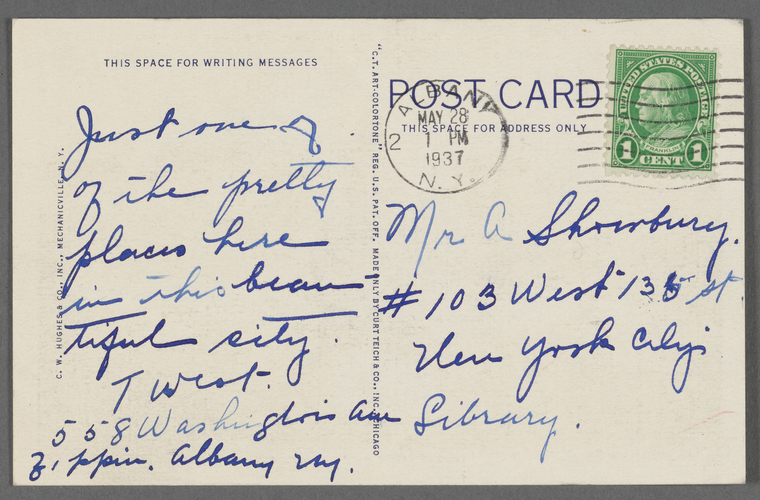 THIS SPACE FOR WRITING MESSAGES
Just one of
of the pretty
places here
in this beau
tiful city.
T West.
558 Washington Ave
Albany NY.
C. W. HUGHES & CO., INC., MECHANICVILLE, N. Y.
"C.T. ART-COLORTONE" REG. U.S. PAT. OFF. MADE ONLY BY CURT TEICH & CO., INC., CHICAGO
POST CARD
THIS SPACE FOR ADDRESS ONLY
ALBANY
2
MAY 28
1 PM
1937
N.Y.
UNITED STATES POSTAGE
FRANKLIN
1 CENT 1
Mr A Shombury.
#103 West 135 st.
New York City
Library.